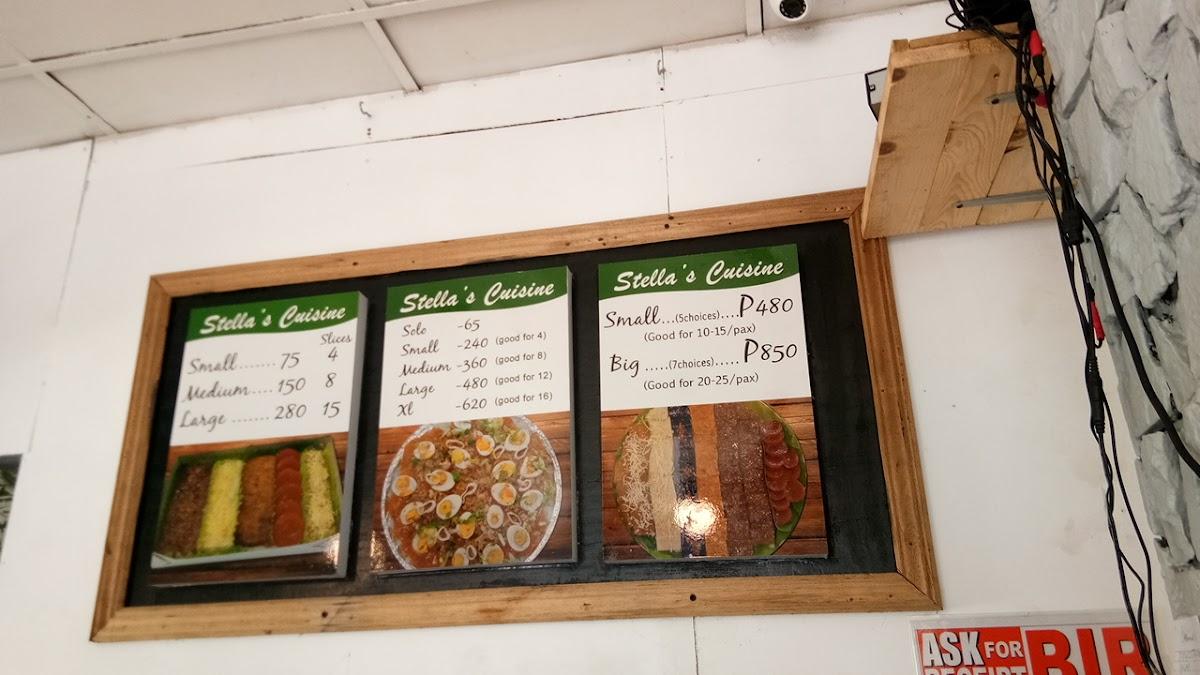 Stella's Cuisine
Slices
Small....... 75 4
Medium.... 150 8
Large ....... 280 15
Stella's Cuisine
Solo -65
Small -240 (good for 4)
Medium -360 (good for 8)
Large -480 (good for 12)
Xl -620 (good for 16)
Stella's Cuisine
Small...(5choices)....P480
(Good for 10-15/pax)
Big .....(7choices)..... P850
(Good for 20-25/pax)
ASK FOR BIR
RECEIPT